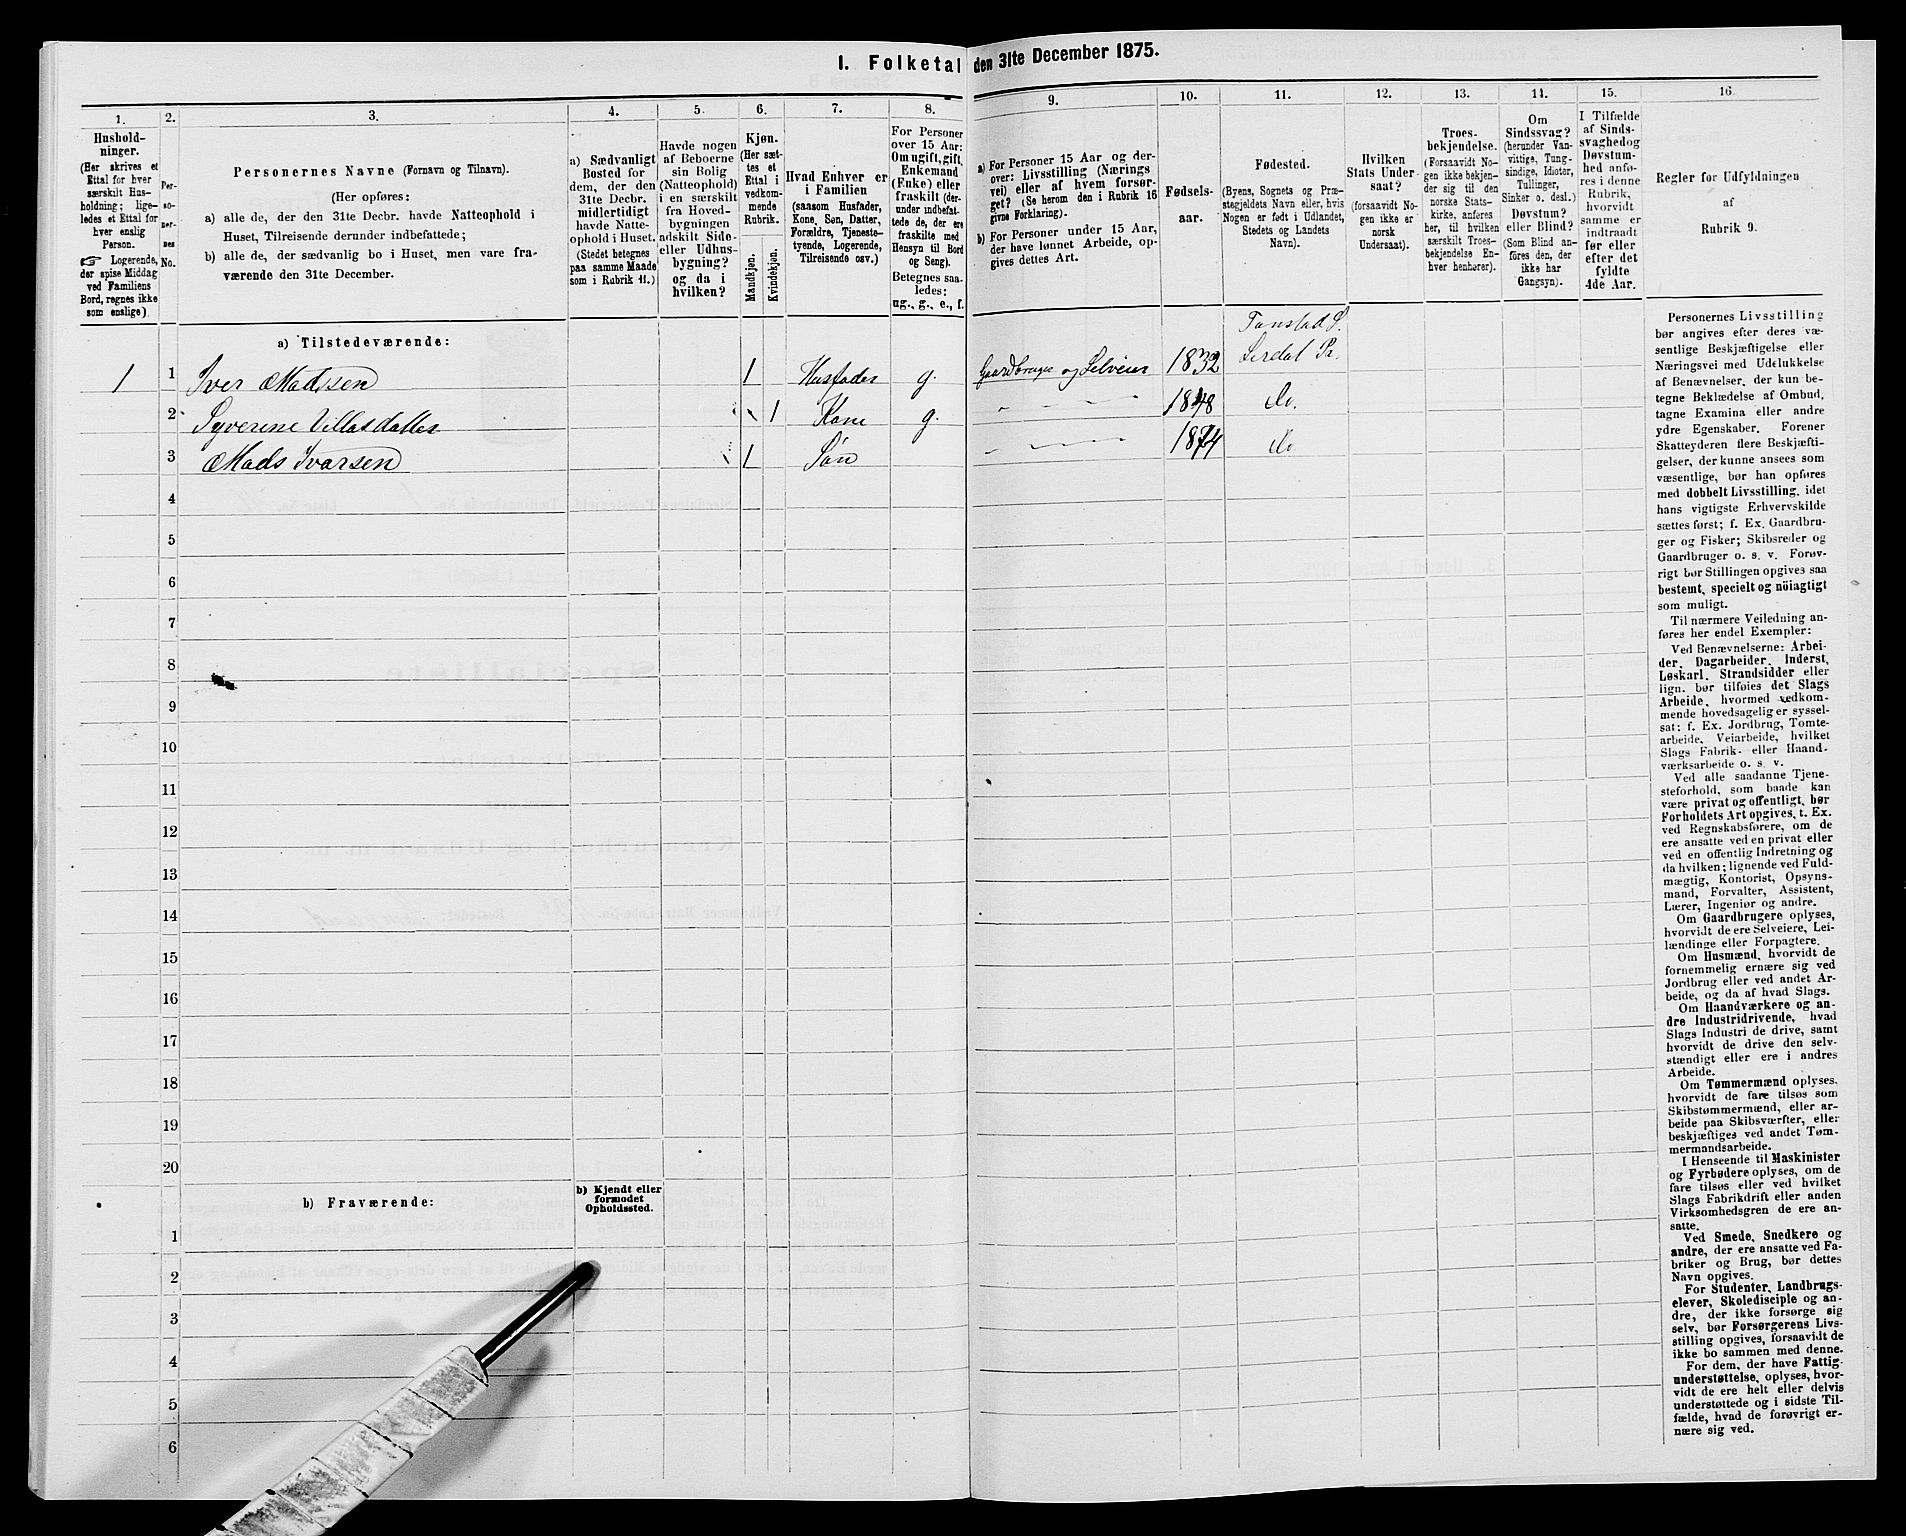 I. Folketal den 31te December 1875.
1.
2.
3.
4.
5.
6.
7.
8.
9.
10.
11.
12.
13.
14.
15.
16.
Hushold-
ninger.
(Her skrives et
Ettal for hver
særskilt Hus-
holdning; lige-
ledes et Ettal for
hver enslig
Person.
☞ Logerende,
der spise Middag
ved Familiens
Bord, regnes ikke
som enslige).
Per-
so-
ner-
nes
No.
Personernes Navne (Fornavn og Tilnavn).
(Her opføres:
a) alle de, der den 31te Decbr. havde Natteophold i
Huset, Tilreisende derunder indbefattede;
b) alle de, der sædvanlig bo i Huset, men vare fra-
værende den 31te December.
a) Sædvanligt
Bosted for
dem, der den
31te Decbr.
midlertidigt
havde Natte-
ophold i Huset.
(Stedet betegnes
paa samme Maade
som i Rubrik 11.)
Havde nogen
af Beboerne
sin Bolig
(Natteophold)
i en særskilt
fra Hoved-
bygningen
adskilt Side-
eller Udhus-
bygning?
og da i
hvilken?
Kjøn.
(Her sæt-
tes et
Ettal i
vedkom-
mende
Rubrik.
Mandkjøn.
Kvindekjøn.
Hvad Enhver er
i Familien
(saasom Husfader,
Kone, Søn, Datter,
Forældre, Tjeneste-
tyende, Logerende,
Tilreisende osv.)
For Personer
over 15 Aar:
Om ugift, gift,
Enkemand
(Enke) eller
fraskilt (der-
under indbefat-
tede de, der ere
fraskilte med
Hensyn til Bord
og Seng).
Betegnes saa-
ledes:
ug., g., e., f.
a) For Personer 15 Aar og der-
over: Livsstilling (Nærings
vei) eller af hvem forsør-
get? (Se herom den i Rubrik 16
givne Forklaring).
b) For Personer under 15 Aar,
der have lønnet Arbeide, op-
gives dettes Art.
Fødsels-
aar.
Fødested.
(Byens, Sognets og Præ-
stegjeldets Navn eller, hvis
Nogen er født i Udlandet,
Stedets og Landets
Navn).
Hvilken
Stats Under
saat?
(forsaavidt No-
gen ikke er
norsk
Undersaat).
Troes-
bekjendelse.
(Forsaavidt No-
gen ikke bekjen-
der sig til den
norske Stats-
kirke, anføres
her, til hvilken
særskilt Troes-
bekjendelse En-
hver henhører).
Om
Sindssvag?
(herunder Van-
vittige, Tung-
sindige, Idioter,
Tullinger,
Sinker o. desl.)
Døvstum?
eller Blind?
(Som Blind an-
føres den, der
ikke har
Gangsyn).
I Tilfælde
af Sinds-
svaghed og
Døvstum-
hed anfø-
res i denne
Rubrik,
hvorvidt
samme er
indtraadt
før eller
efter det
fyldte
4de Aar.
Regler for Udfyldningen
af
Rubrik 9.
a) Tilstedeværende:
1 1 Iver Madssen 1 Husfader g. Gaardbruger og Selveier 1832 Lerdal Pr.
2 1 Kone g. 1848 do.
3 Mads Ivarsen 1 Søn 1874 do.
4
5
6
7
8
9
10
11
12
13
14
15
16
17
18
19
20
b) Fraværende:
b) Kjendt eller
formodet
Opholdssted.
1
2
3
4
5
6
Personernes Livsstilling
bør angives efter deres væ-
sentlige Beskjæftigelse eller
Næringsvei med Udelukkelse
af Benævnelser, der kun be-
tegne Beklædelse af Ombud,
tagne Examina eller andre
ydre Egenskaber. Forener
Skatteyderen flere Beskjæfti-
gelser, der kunne ansees som
væsentlige, bør han opføres
med dobbelt Livsstilling, idet
hans vigtigste Erhvervskilde
sættes først; f. Ex. Gaardbru-
ger og Fisker; Skibsreder og
Gaardbruger o. s. v. Forøv-
rigt bør Stillingen opgives saa
bestemt, specielt og nöiagtigt
som muligt.
Til nærmere Veiledning an-
føres her endel Exempler:
Ved Benævnelserne: Arbei-
der, Dagarbeider, Inderst,
Løskarl, Strandsidder eller
lign. bør tilføies det Slags
Arbeide, hvormed vedkom-
mende hovedsagelig er syssel-
sat; f. Ex. Jordbrug, Tomte-
arbeide, Veiarbeide, hvilket
Slags Fabrik- eller Haand-
værksarbeide o. s. v.
Ved alle saadanne Tjene-
steforhold, som baade kan
være privat og offentligt, bør
Forholdets Art opgives, t. Ex.
ved Regnskabsførere, om de
ere ansatte ved en privat eller
ved en offentlig Indretning og
da hvilken; lignende ved Fuld-
mægtig, Kontorist, Opsyns-
mand, Forvalter, Assistent,
Lærer, Ingeniør og andre.
Om Gaardbrugere oplyses,
hvorvidt de ere Selveiere, Lei-
lændinge eller Forpagtere.
Om Husmænd, hvorvidt de
fornemmelig ernære sig ved
Jordbrug eller ved andet Ar-
beide, og da af hvad Slags.
Om Haandværkere og an-
dre Industridrivende, hvad
Slags Industri de drive, samt
hvorvidt de drive den selv-
stændigt eller ere i andres
Arbeide.
Om Tømmermænd oplyses,
hvorvidt de fare tilsøs som
Skibstømmermænd, eller ar-
beide paa Skibsværfter, eller
beskjæftiges ved andet Tøm-
mermandsarbeide.
I Henseende til Maskinister
og Fyrbødere oplyses, om de
fare tilsøs eller ved hvilket
Slags Fabrikdrift eller anden
Virksomhedsgren de ere an-
satte.
Ved Smede, Snedkere og
andre, der ere ansatte ved Fa-
briker og Brug, bør dettes
Navn opgives.
For Studenter, Landbrugs-
elever, Skoledisciple og an-
dre, der ikke forsørge sig
selv, bør Forsørgerens Livs-
stilling opgives, forsaavidt de
ikke bo sammen med denne.
For dem, der have Fattig-
understøttelse, oplyses, hvor-
vidt de ere helt eller delvis
understøttede og i sidste Til-
fælde, hvad de forøvrigt er-
nære sig ved.